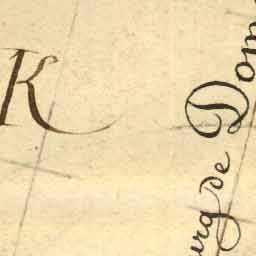 K
urg de Dom